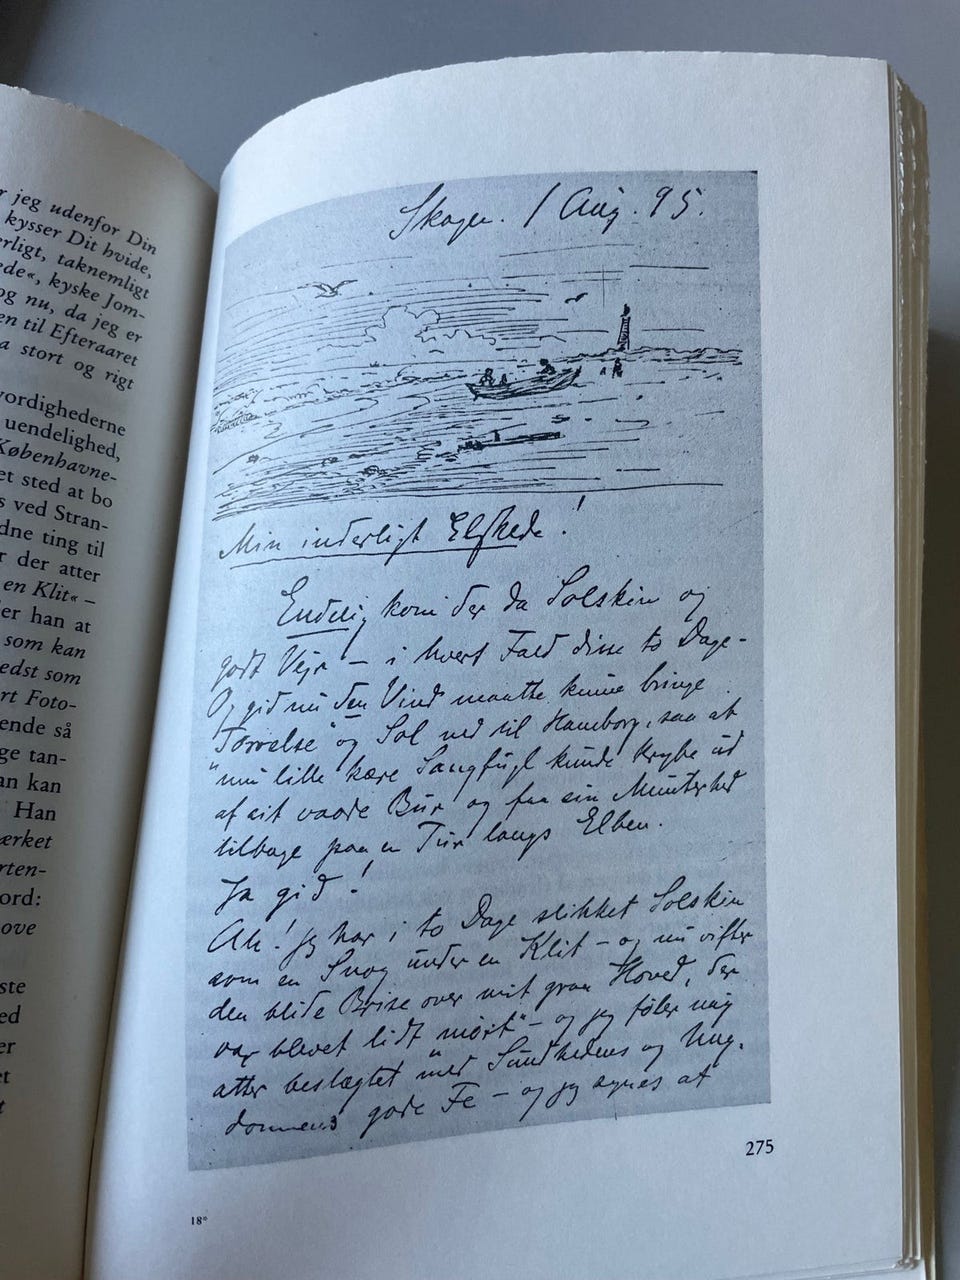 r jeg udenfor Din
kysser Dit hvide,
erligt, taknemligt
ede«, kyske Jom-
og nu, da jeg er
en til Efteraaret
a stort og rigt
vordighederne
uendelighed,
Københavne-
et sted at bo
s ved Stran-
dne ting til
r der atter
en Klit« –
er han at
som kan
edst som
ort Foto-
ende så
ge tan-
an kan
Han
ærket
rten-
ord:
ove
ste
ed
er
et
t
Skagen. 1 Aug. 95.
Min inderligt Elskede!
Endelig kom der da Solskin og
godt Vejr – i hvert Fald disse to Dage –
Og gid nu den Vind maatte kunne bringe
Tørrelse og Sol ned til Hamborg, saa at
min lille kære Sangfugl kunde krybe ud
af sit vaade Bur og faa sin Munterhed
tilbage paa en Tur langs Elben.
Ja gid –!
Ah! jeg har i to Dage slikket Solskin
som en Snog under en Klit – og nu vifter
den blide Brise over mit graa Hoved, der
var blevet lidt "mört" – og jeg føler mig
atter beslægtet med Sundhedens og Ung-
dommens gode Fe – og jeg synes at
275
18*